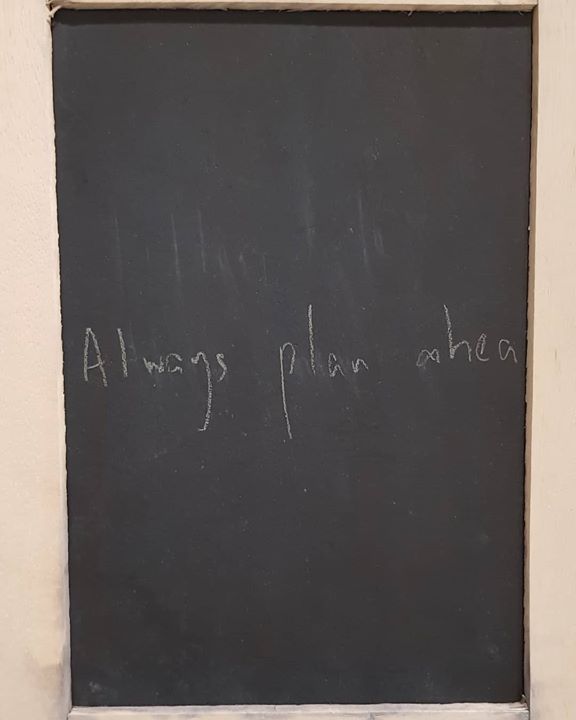 Always plan ahea